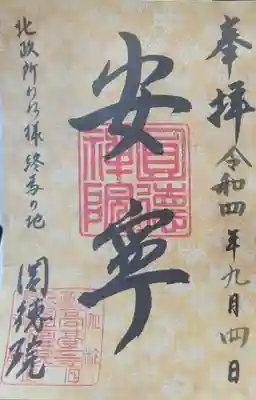 奉拝 令和四年九月四日
安寧
北政所ねね様終焉の地
圓徳院
圓徳禅院